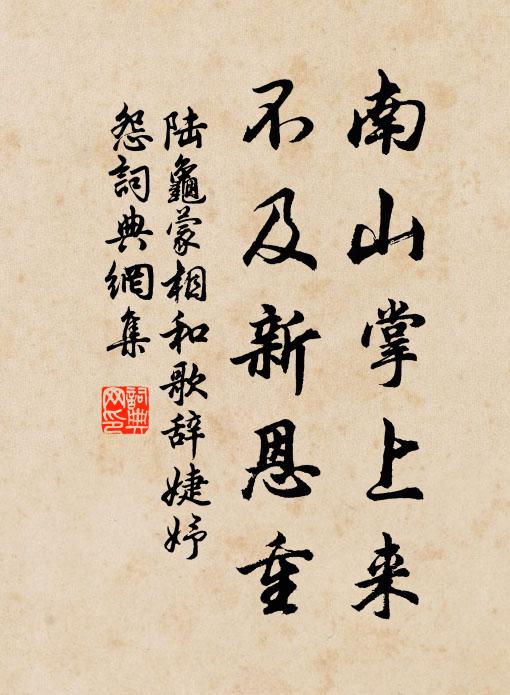 南山掌上来
不及新恩重
陆龜蒙相和歌辞婕妤
怨詞典網集
詞典网印